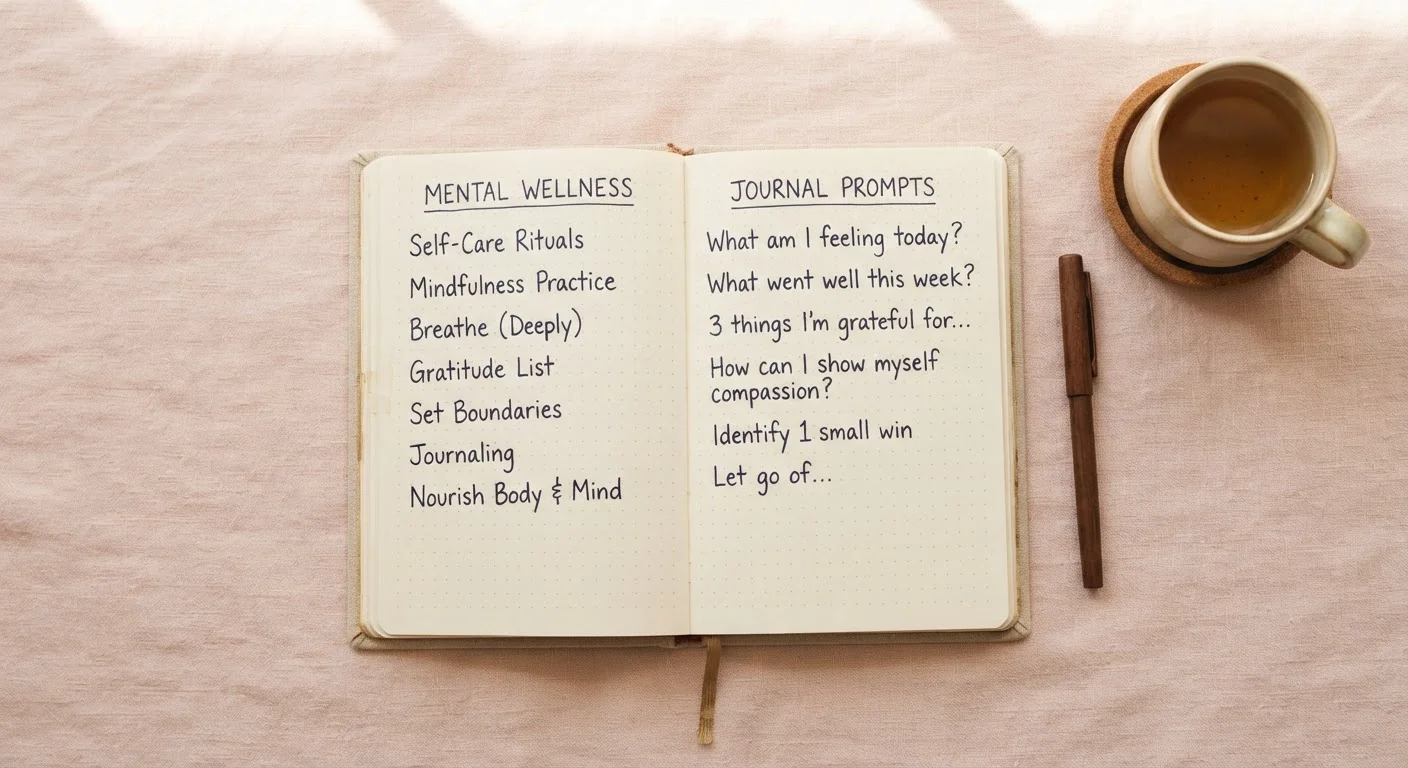 MENTAL WELLNESS
Self-Care Rituals
Mindfulness Practice
Breathe (Deeply)
Gratitude List
Set Boundaries
Journaling
Nourish Body & Mind
JOURNAL PROMPTS
What am I feeling today?
What went well this week?
3 things I'm grateful for...
How can I show myself
compassion?
Identify 1 small win
Let go of...